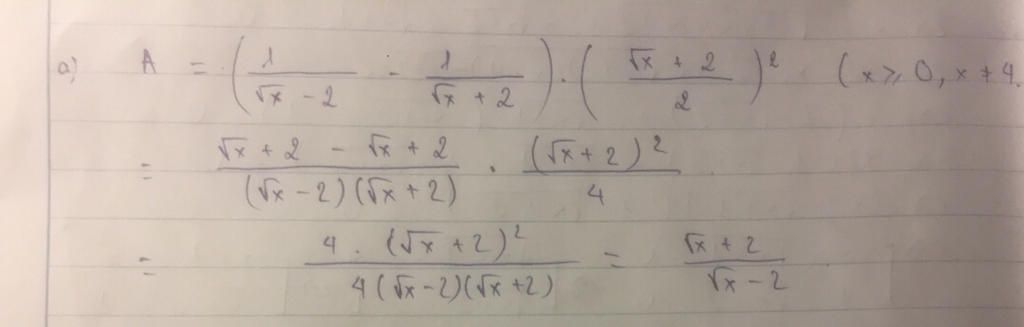 a) A = (1/(√x - 2) - 1/(√x + 2)) · ((√x + 2)/2)² (x ≥ 0, x ≠ 4
= (√x + 2 - √x + 2)/((√x - 2)(√x + 2)) · (√x + 2)²/4
= (4 · (√x + 2)²)/(4(√x - 2)(√x + 2)) = (√x + 2)/(√x - 2)